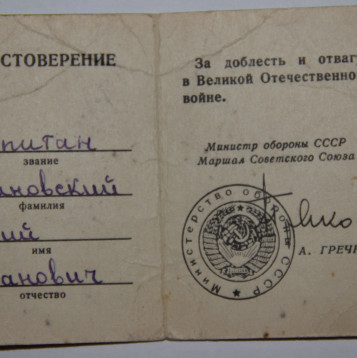 СТОВЕРЕНИЕ
питан
звание
новский
фамилия
ий
имя
анович
отчество
За доблесть и отваг
в Великой Отечественно
войне.
Министр обороны СССР
Маршал Советского Союза
Министерство обороны СССР
А. ГРЕЧ